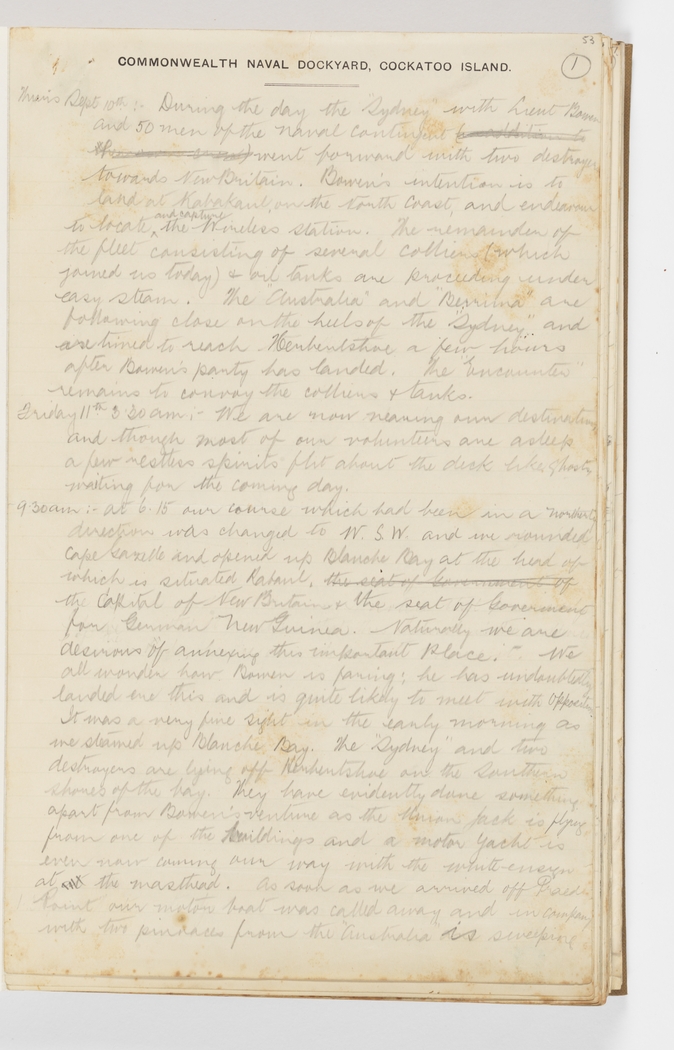 53
1
COMMONWEALTH NAVAL DOCKYARD, COCKATOO ISLAND.
Thurs Sept 10th :- During the day the "Sydney" with Lieut Bowen
and 50 men of the naval contingent
went forward with two destroyers
towards New Britain. Bowen's intention is to
land at Kabakaul, on the North Coast, and endeavour
to locate, and capture the Wireless station. The remainder of
the fleet consisting of several colliers (which
joined us today) & oil tanks are proceeding under
easy steam. The "Australia" and "Berrima" are
following close on the heels of the "Sydney" and
are timed to reach Herbertshoe a few hours
after Bowen's party has landed. The "Encounter"
remains to convoy the colliers & tanks.
Friday 11th 3 30 am :- We are now nearing our destination
and though most of our volunteers are asleep
a few restless spirits flit about the deck like ghosts
waiting for the coming day.
9.30 am :- at 6.15 our course which had been in a northerly
direction was changed to W.S.W. and we rounded
Cape Gazelle and opened up Blanche Bay at the head of
which is situated Rabaul, the seat of Government of
the Capital of New Britain & the seat of Goverment
for German New Guinea. Naturally we are
desirous of annexing this important place. We
all wonder how Bowen is faring; he has undoubtedly
landed ere this and is quite likely to meet with opposition.
It was a very fine sight in the early morning as
we steamed up Blanche Bay. The "Sydney" and two
destroyers are lying off Herbertshoe on the Southern
shores of the bay. They have evidently done something
apart from Bowen's venture as the Union Jack is flying
from one of the buildings and a motor yacht is
even now coming our way with the white ensign
at the masthead. As soon as we arrived off Praed
Point our motor boat was called away and in company
with two pinnaces from the "Australia" is sweeping